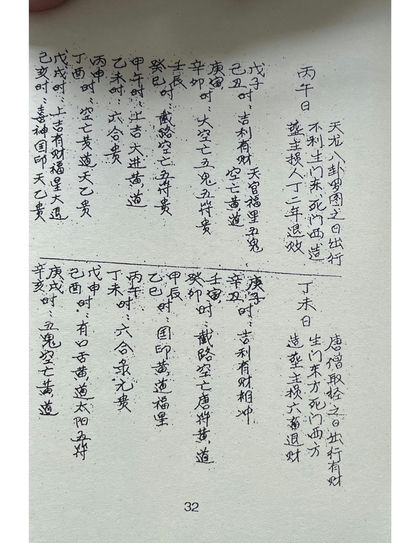 丙午日
天龙八卦罗图之日出行
不利生门东死门西造
葬主损人丁二年退败
戊子时：天官福星五鬼
己丑时：吉利有财空亡黄道
庚寅时
辛卯时：大空亡五鬼五符贵
壬辰
癸巳时：截路空亡五符贵
甲午时：上吉大进黄道
乙未时：六合贵
丙申
丁酉时：空亡黄道天乙贵
戊戌时：上吉有财福星大退
己亥时：喜神国印天乙贵
丁未日
唐僧取经之日出行有财
生门东方死门西方
造葬主损六畜退财
庚子
辛丑时：吉利有财相冲
壬寅
癸卯时：截路空亡唐符黄道
甲辰
乙巳时：国印黄道福星
丙午
丁未时：六合无贵
戊申
己酉时：有口舌黄道太阳五符
庚戌
辛亥时：五鬼空亡黄道
32